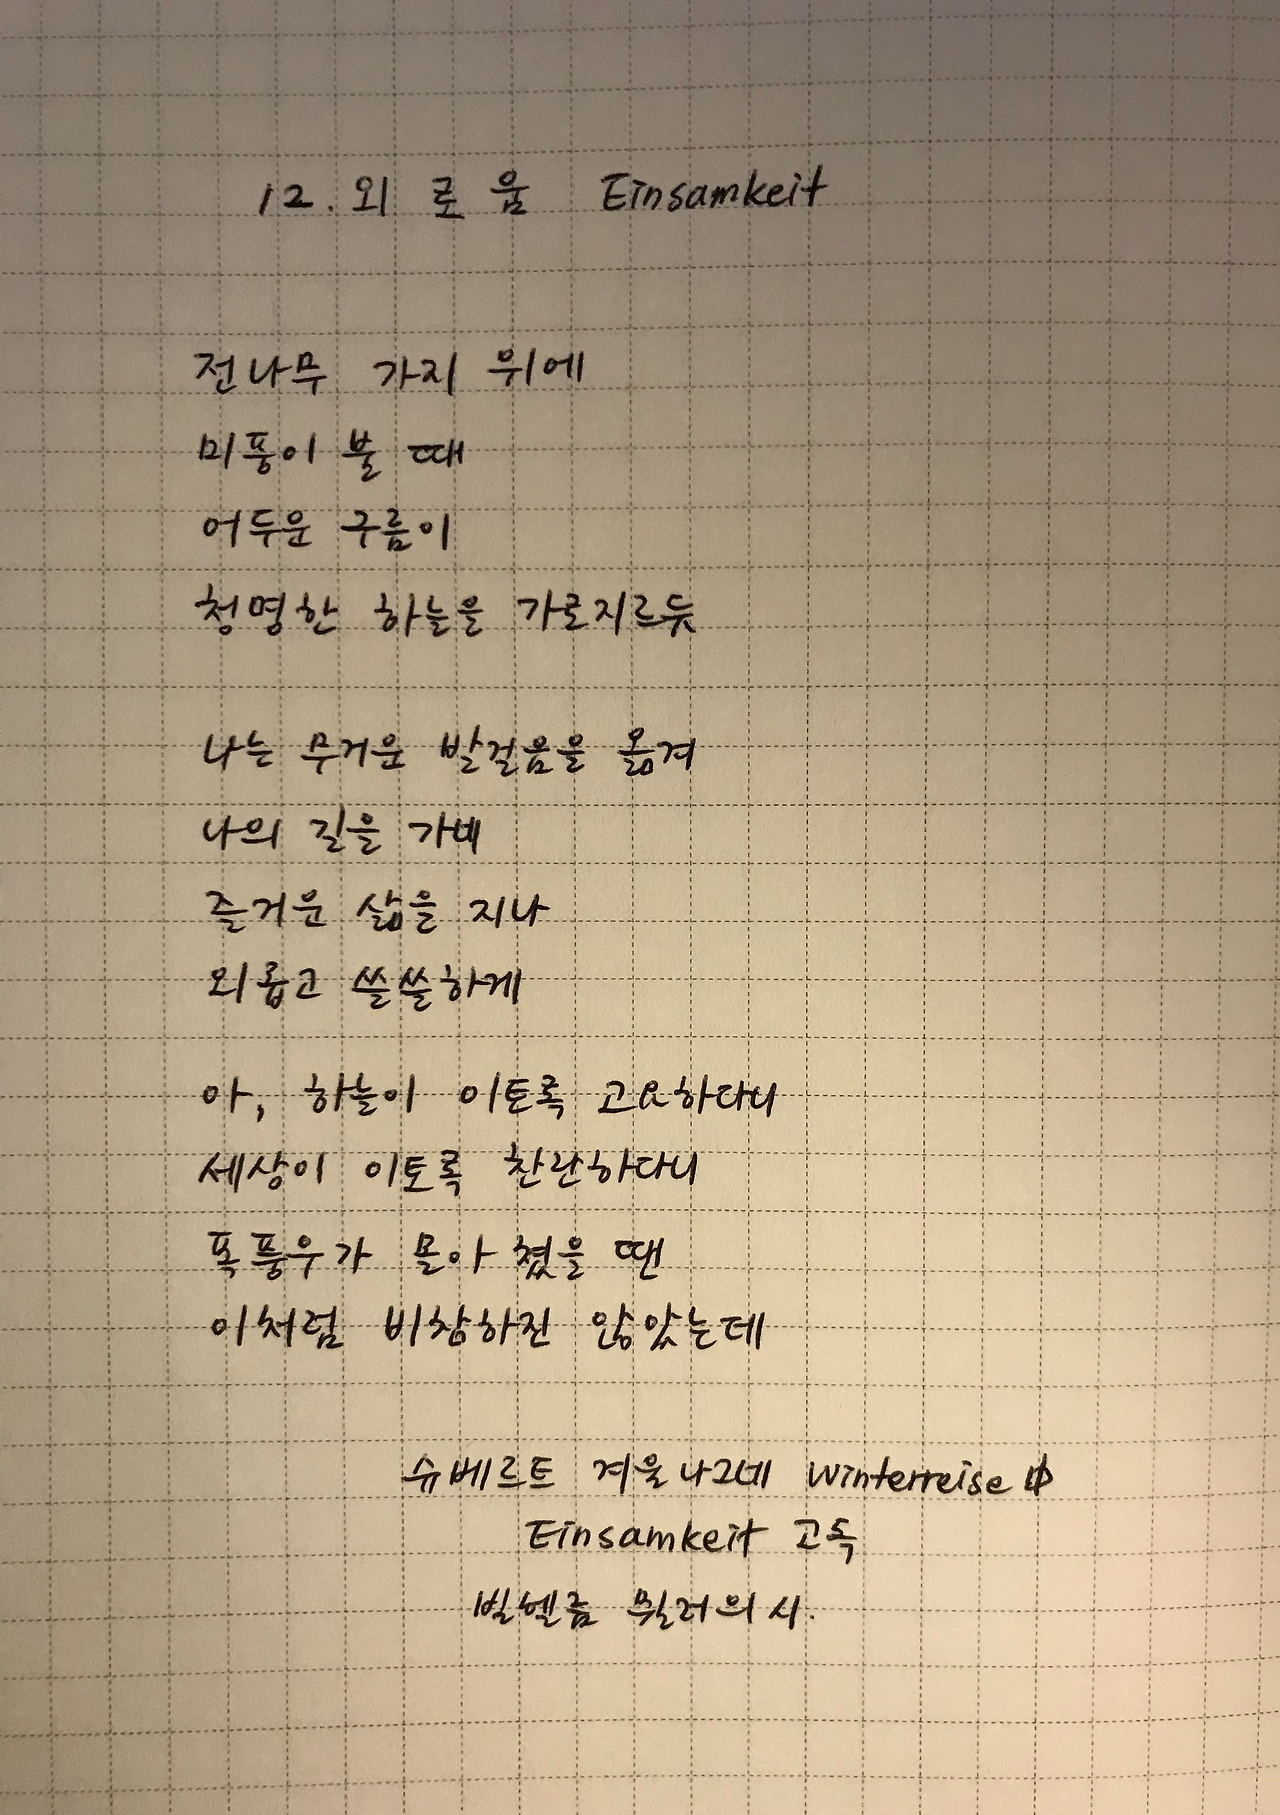 12. 외로움 Einsamkeit
전나무 가지 위에
미풍이 불 때
어두운 구름이
청명한 하늘을 가로지르듯
나는 무거운 발걸음을 옮겨
나의 길을 가네
즐거운 삶을 지나
외롭고 쓸쓸하게
아, 하늘이 이토록 고요하다니
세상이 이토록 찬란하다니
폭풍우가 몰아 쳤을 땐
이처럼 비참하진 않았는데
슈베르트 겨울나그네 Winterreise 中
Einsamkeit 고독
빌헬름 뮐러의 시.